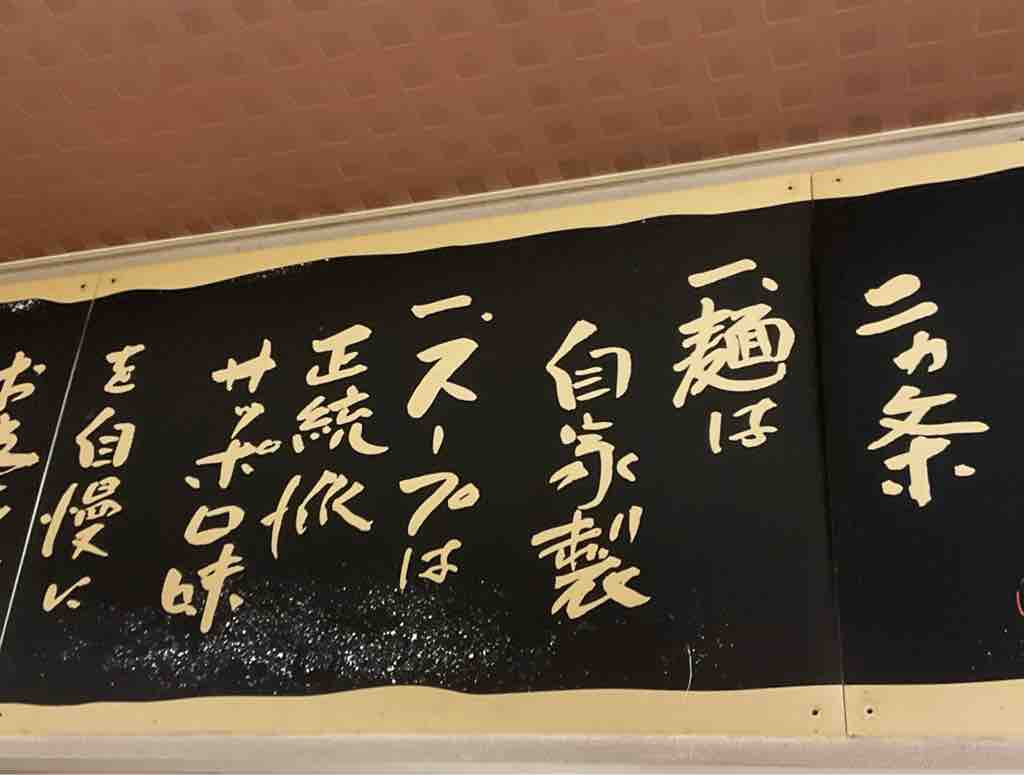 二カ条
一、麺は
自家製
一、スープは
正統派
サッポロ味
を自慢に